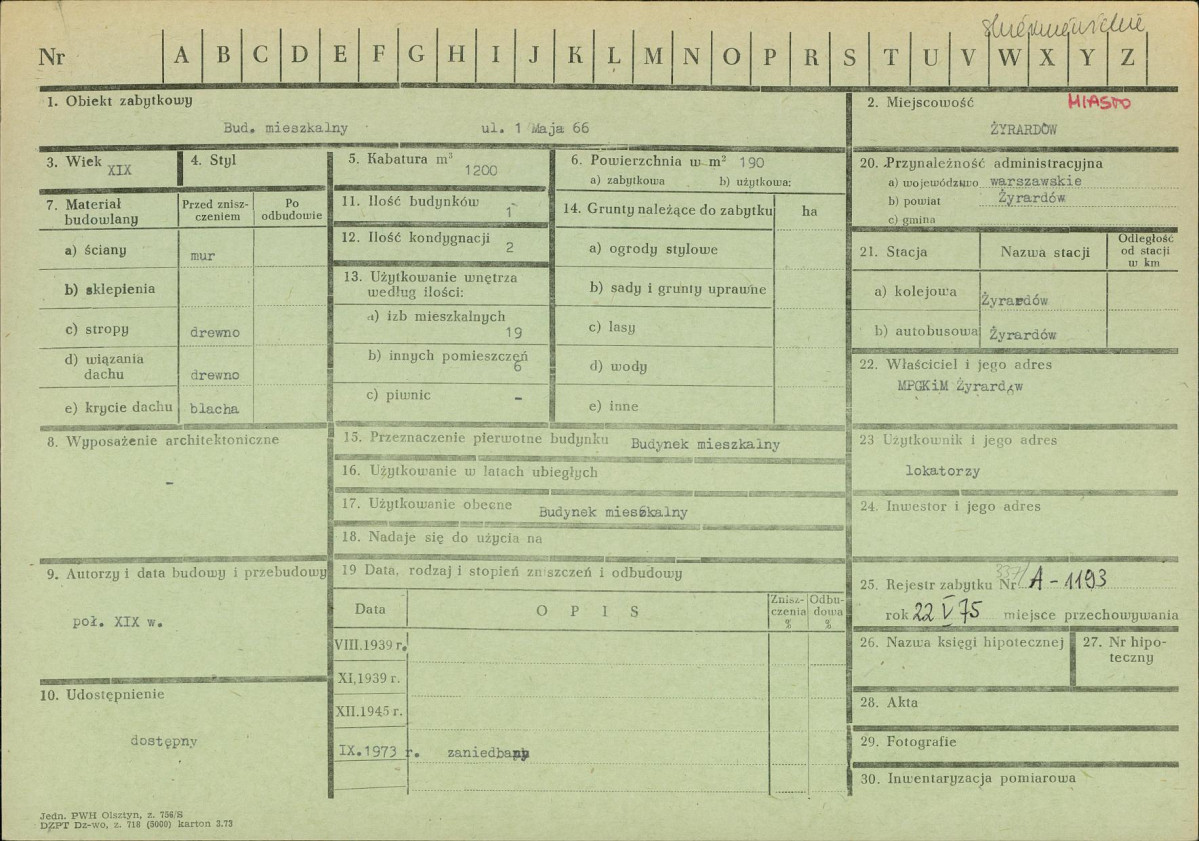 skierniewickie
Nr A B C D E F G H I J K L M N O P R S T U V W X Y Z
1. Obiekt zabytkowy
Bud. mieszkalny ul. 1 Maja 66
2. Miejscowość MIASTO
ŻYRARDÓW
3. Wiek XIX
4. Styl
5. Kabatura m³
1200
6. Powierzchnia w m² 190
a) zabytkowa b) użytkowa:
20. Przynależność administracyjna
a) województwo warszawskie
b) powiat Żyrardów
c) gmina
7. Materiał budowlany
Przed znisz-
czeniem
Po
odbudowie
a) ściany mur
b) sklepienia
c) stropy drewno
d) wiązania
dachu drewno
e) krycie dachu blacha
11. Ilość budynków 1
12. Ilość kondygnacji 2
13. Użytkowanie wnętrza
według ilości:
a) izb mieszkalnych
19
b) innych pomieszczeń
6
c) piwnic -
14. Grunty należące do zabytku ha
a) ogrody stylowe
b) sady i grunty uprawne
c) lasy
d) wody
e) inne
21. Stacja Nazwa stacji
Odległość
od stacji
w km
a) kolejowa Żyrardów
b) autobusowa Żyrardów
22. Właściciel i jego adres
MPGKiM Żyrardów
8. Wyposażenie architektoniczne
-
15. Przeznaczenie pierwotne budynku Budynek mieszkalny
16. Użytkowanie w latach ubiegłych
17. Użytkowanie obecne Budynek mieszkalny
18. Nadaje się do użycia na
23 Użytkownik i jego adres
lokatorzy
24. Inwestor i jego adres
9. Autorzy i data budowy i przebudowy
poł. XIX w.
19 Data, rodzaj i stopień zniszczeń i odbudowy
Data OPIS
Znisz-
czenia
%
Odbu-
dowa
%
VIII.1939 r.
XI,1939 r.
XII.1945 r.
IX.1973 r. zaniedbany
25. Rejestr zabytku Nr 337/ A-1193
rok 22 V 75 miejsce przechowywania
26. Nazwa księgi hipotecznej
27. Nr hipo-
teczny
10. Udostępnienie
dostępny
28. Akta
29. Fotografie
30. Inwentaryzacja pomiarowa
Jedn. PWH Olsztyn, z. 756/S
DZPT Dz-wo, z. 718 (5000) karton 3.73